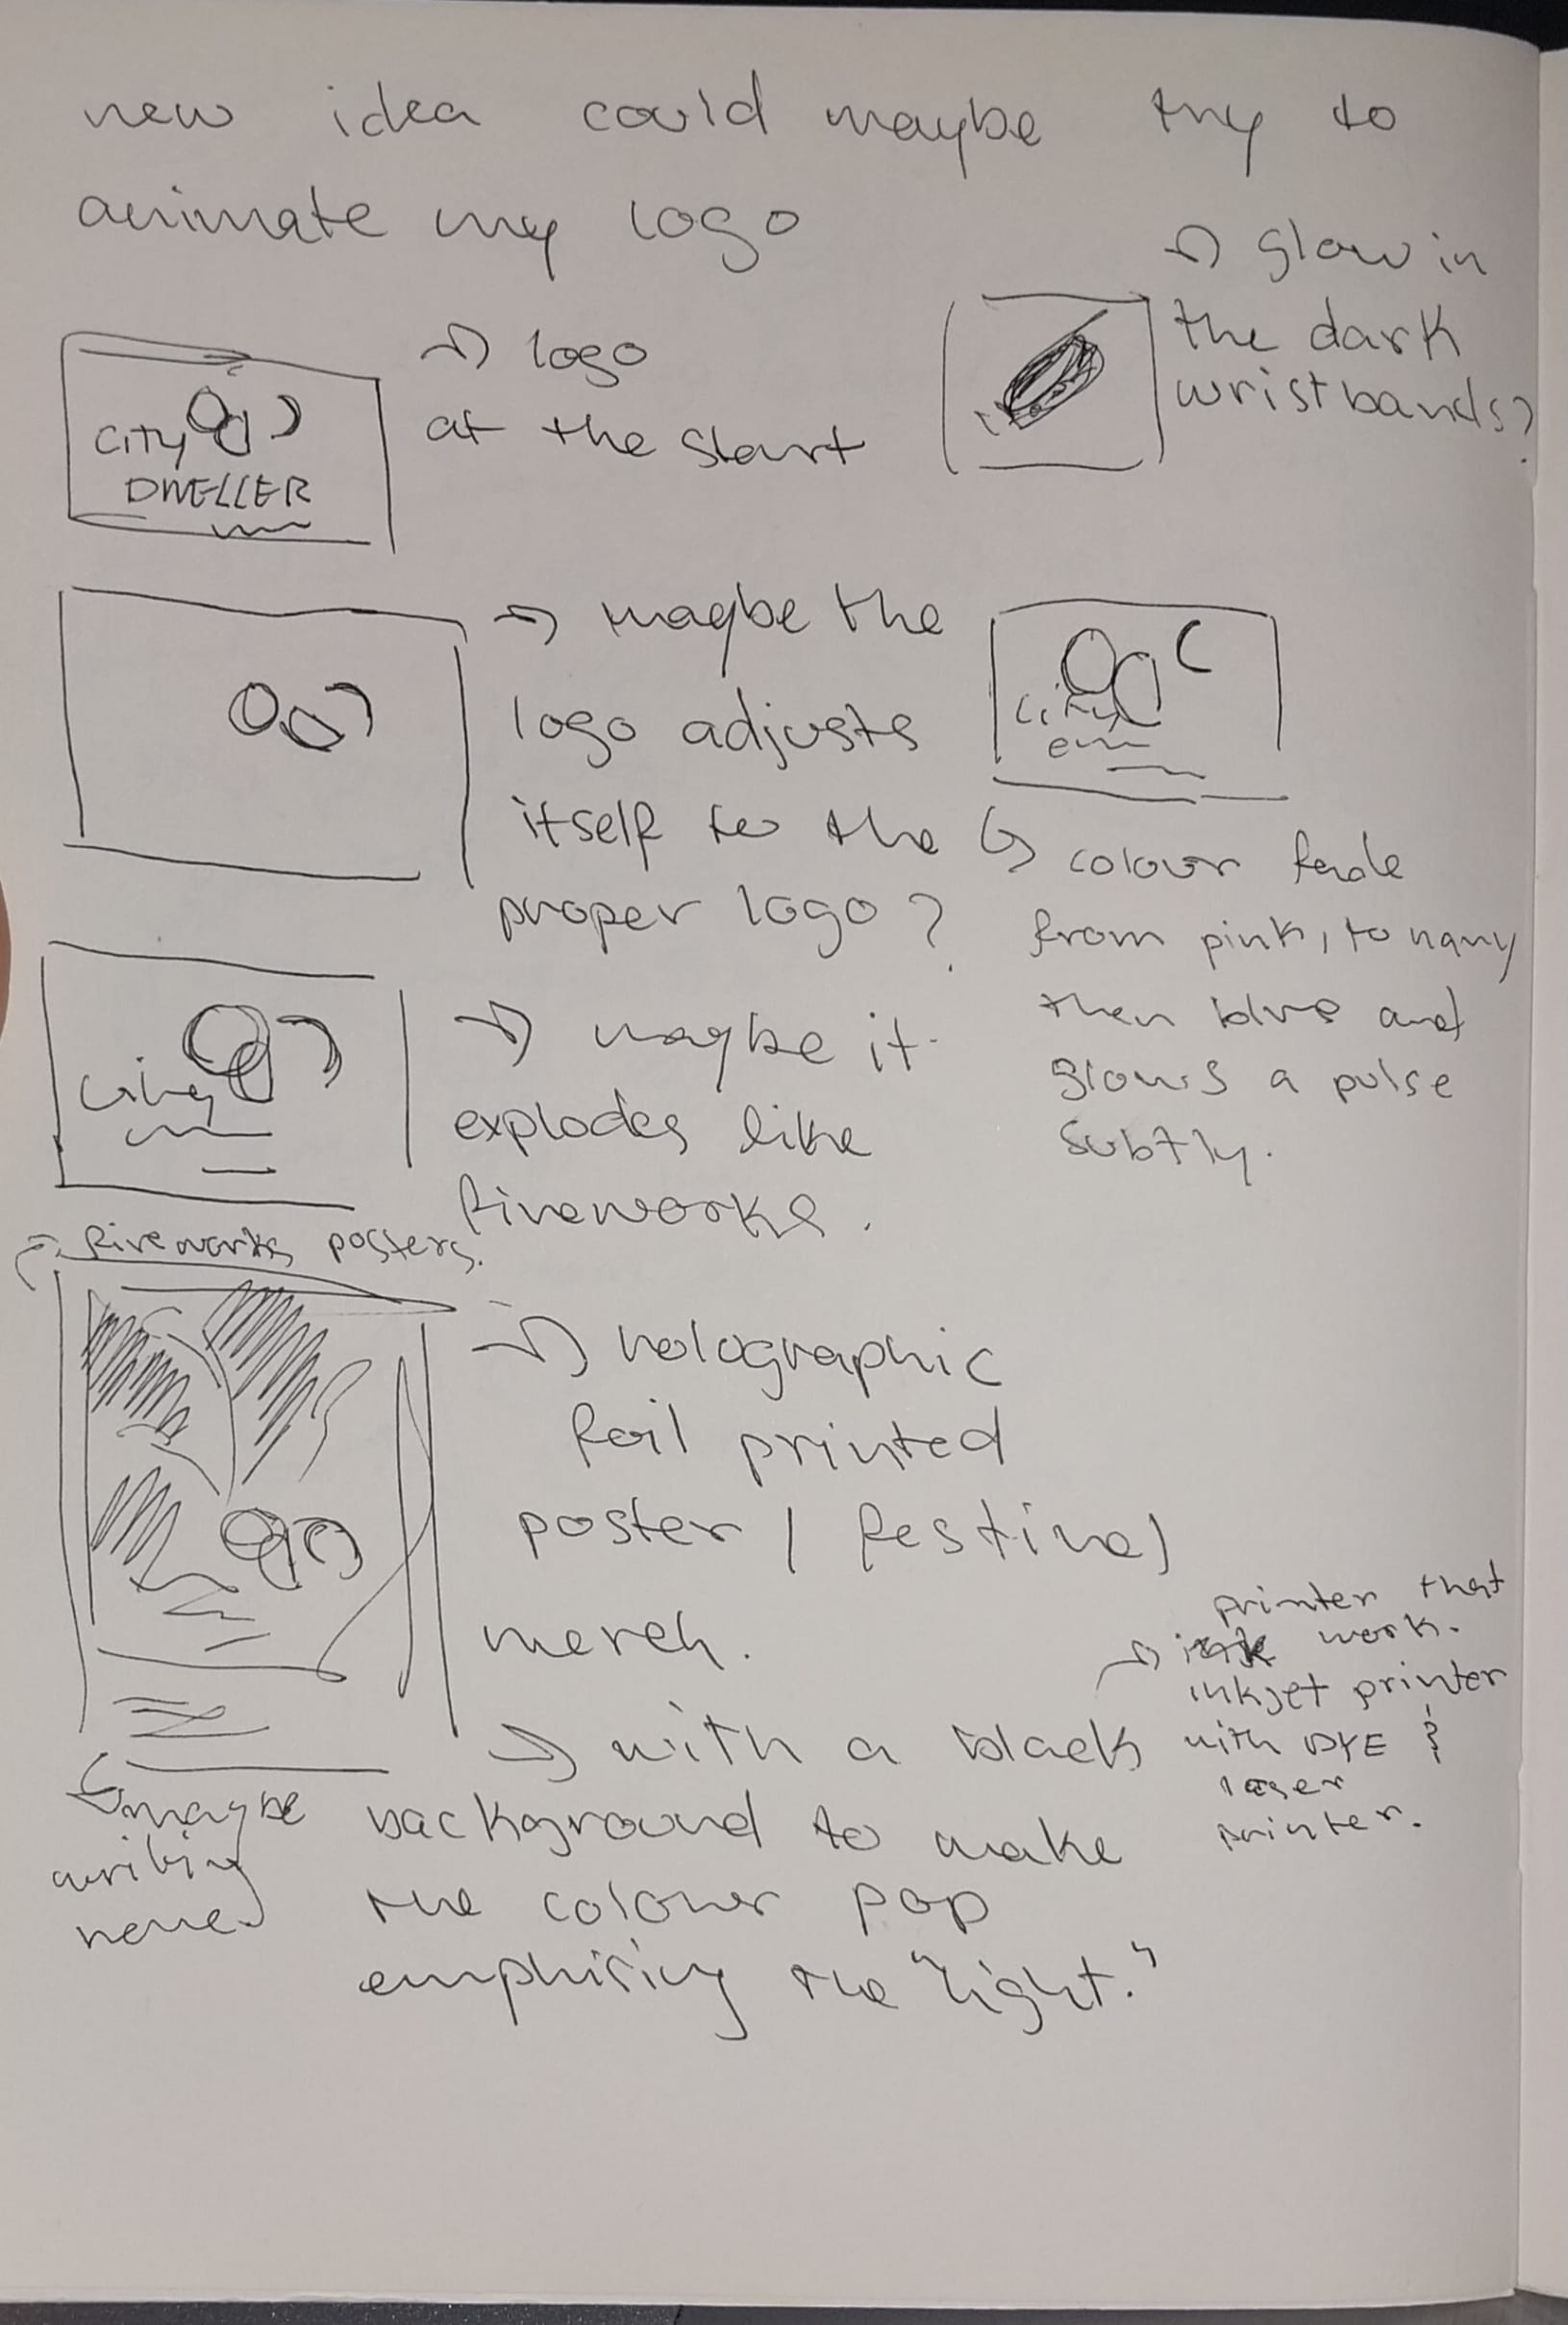 new idea could maybe try to
animate my logo
→ glow in
the dark
wristbands?
→ logo
at the start
city
DWELLER
→ maybe the
logo adjusts
itself to the
proper logo?
city
↳ colour fade
from pink, to navy
then blue and
glows a pulse
subtly.
city
→ maybe it
explodes like
fireworks.
→ fireworks posters.
→ holographic
foil printed
poster / festival
merch.
→ with a black
background to make
the colour pop
emphising the "light."
→ printer that
ink work.
inkjet printer
with DYE &
laser
printer.
maybe
writing
here